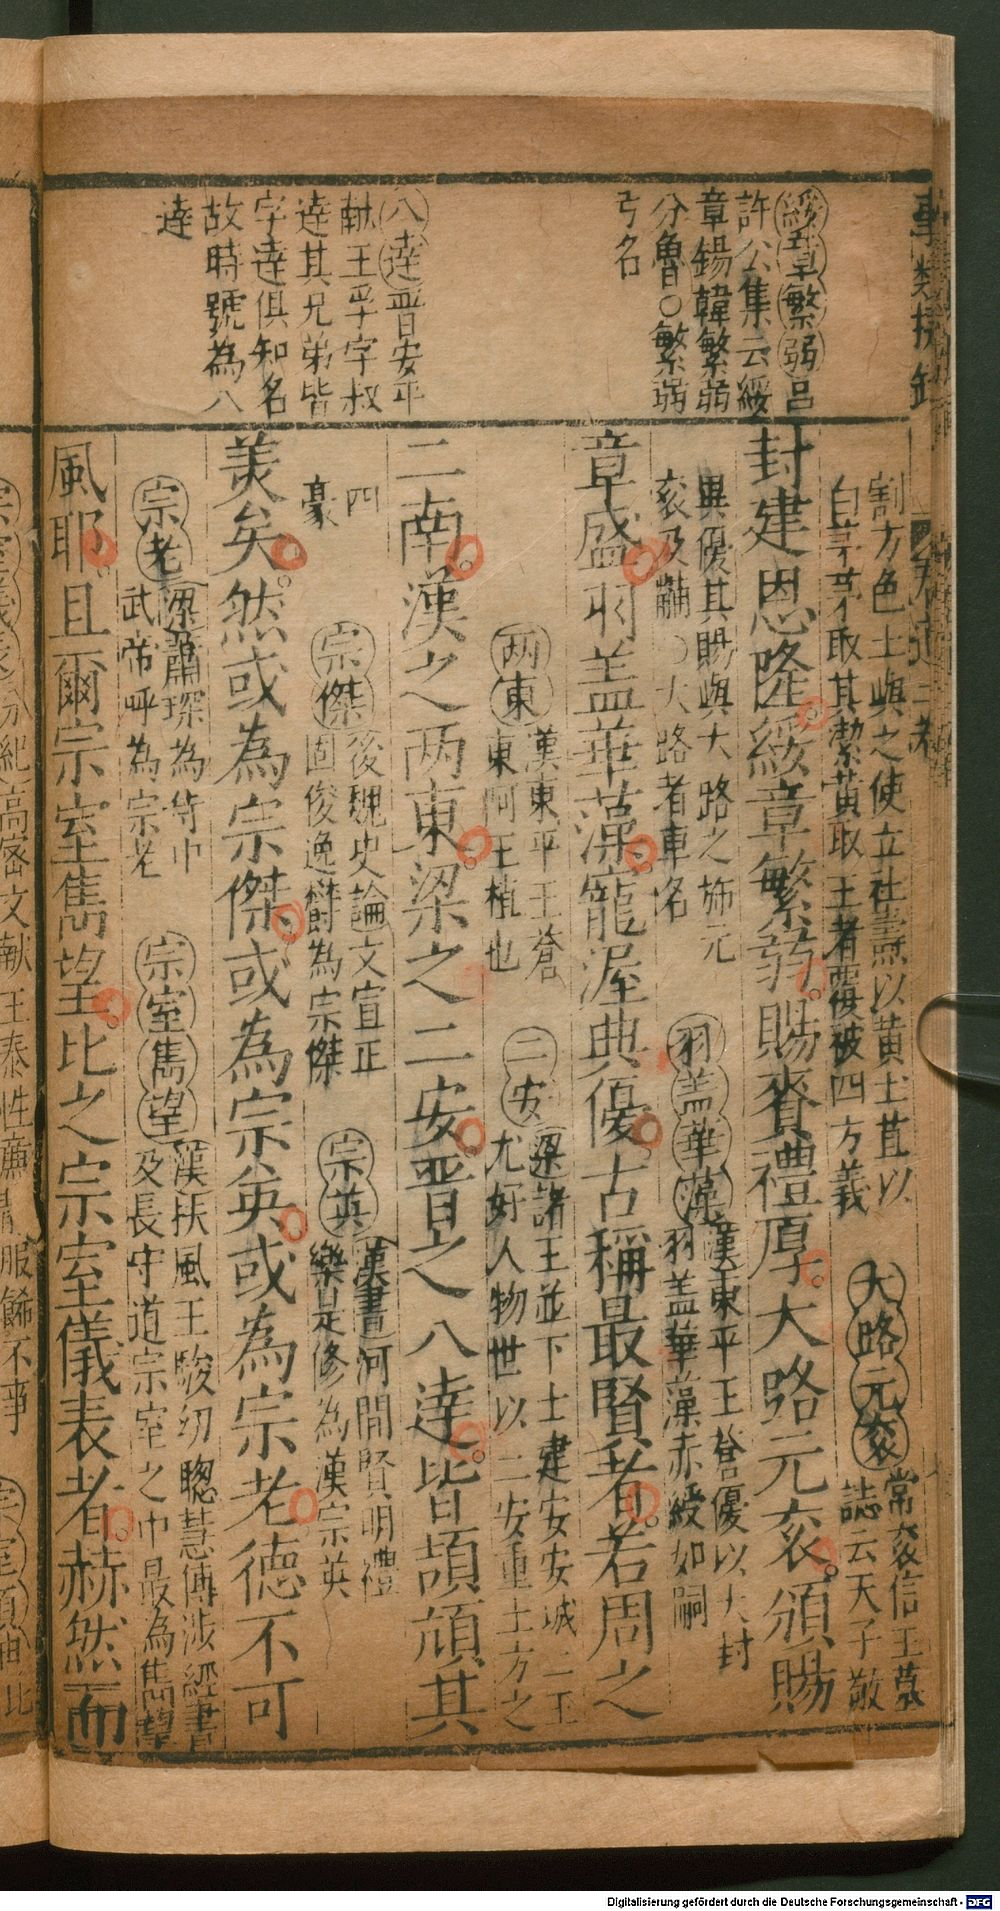 綏章繁弱呂
許公集云綏
章錫韓繁弱
分魯〇繁弱
弓名
八逹晋安平
献王孚字叔
逹其兄弟皆
字逹俱知名
故時號為八
逹
割方色土與之使立社燾以黄土苴以
白茅茅取其潔黄取王者覆被四方義
大路元衮
常衮信王墓
誌云天子敬
封建恩隆綏章繁弱賜賚禮厚大路元衮頒賜
異優其賜與大路之斾元
衮及黼〇大路者車名
羽盖華藻
漢東平王蒼優以大封
羽盖華藻赤綬如嗣
章盛羽盖華藻寵渥典優古稱最賢者若周之
两東
漢東平王蒼
東阿王植也
二安
梁諸王並下士建安安城二王
尤好人物世以二安重士方之
二南漢之两東梁之二安晋之八逹皆頡頏其
四
豪
宗傑
後魏史論文宣正
固俊逸欝為宗傑
宗英
漢書河間賢明禮
樂是修為漢宗英
美矣然或為宗傑或為宗英或為宗老德不可
宗老
梁蕭琛為侍中
武帝呼為宗老
宗室雋望
漢扶風王駿幼聰慧傅涉經書
及長守道宗室之中最為雋望
風耶且爾宗室雋望比之宗室儀表者赫然而
Digitalisierung gefördert durch die Deutsche Forschungsgemeinschaft - DFG